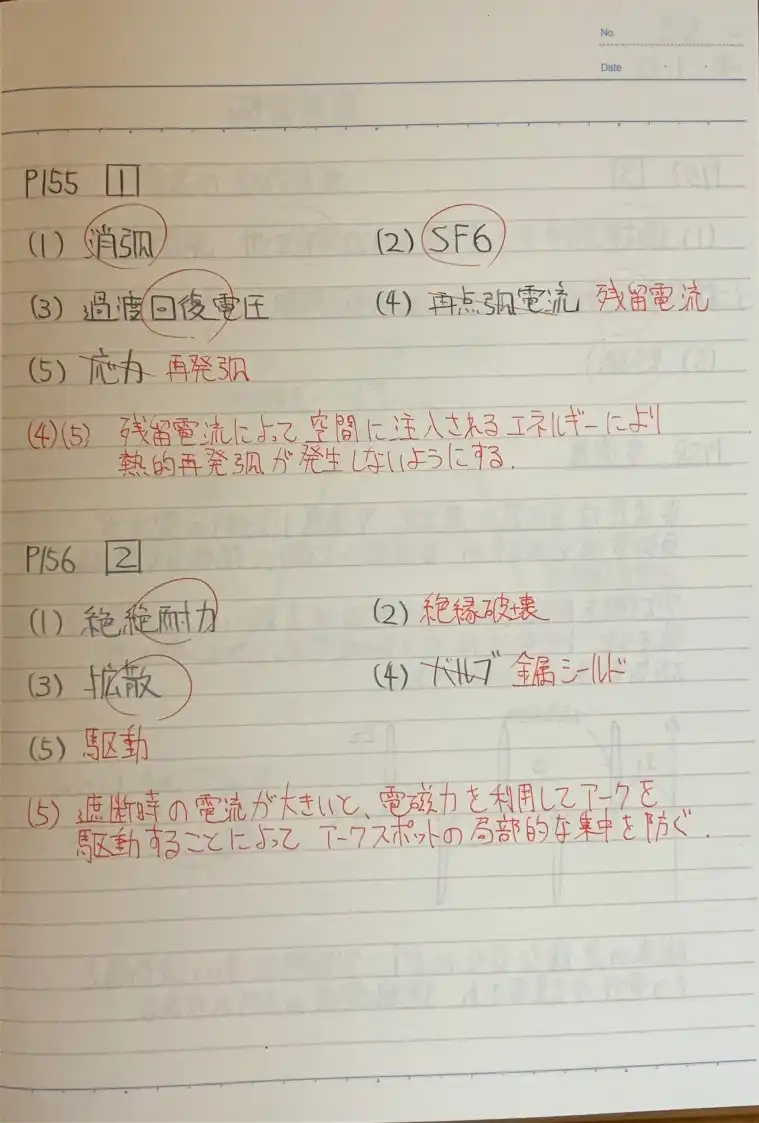 No.
Date
P155 1
(1) 消弧 (2) SF6
(3) 過渡回復電圧 (4) 再点弧電流 残留電流
(5) 応力 再発弧
(4)(5) 残留電流によって空間に注入されるエネルギーにより
熱的再発弧が発生しないようにする.
P156 2
(1) 絶絶耐力 (2) 絶縁破壊
(3) 拡散 (4) バルブ 金属シールド
(5) 駆動
(5) 遮断時の電流が大きいと、電磁力を利用してアークを
駆動することによって アークスポットの局部的な集中を防ぐ.